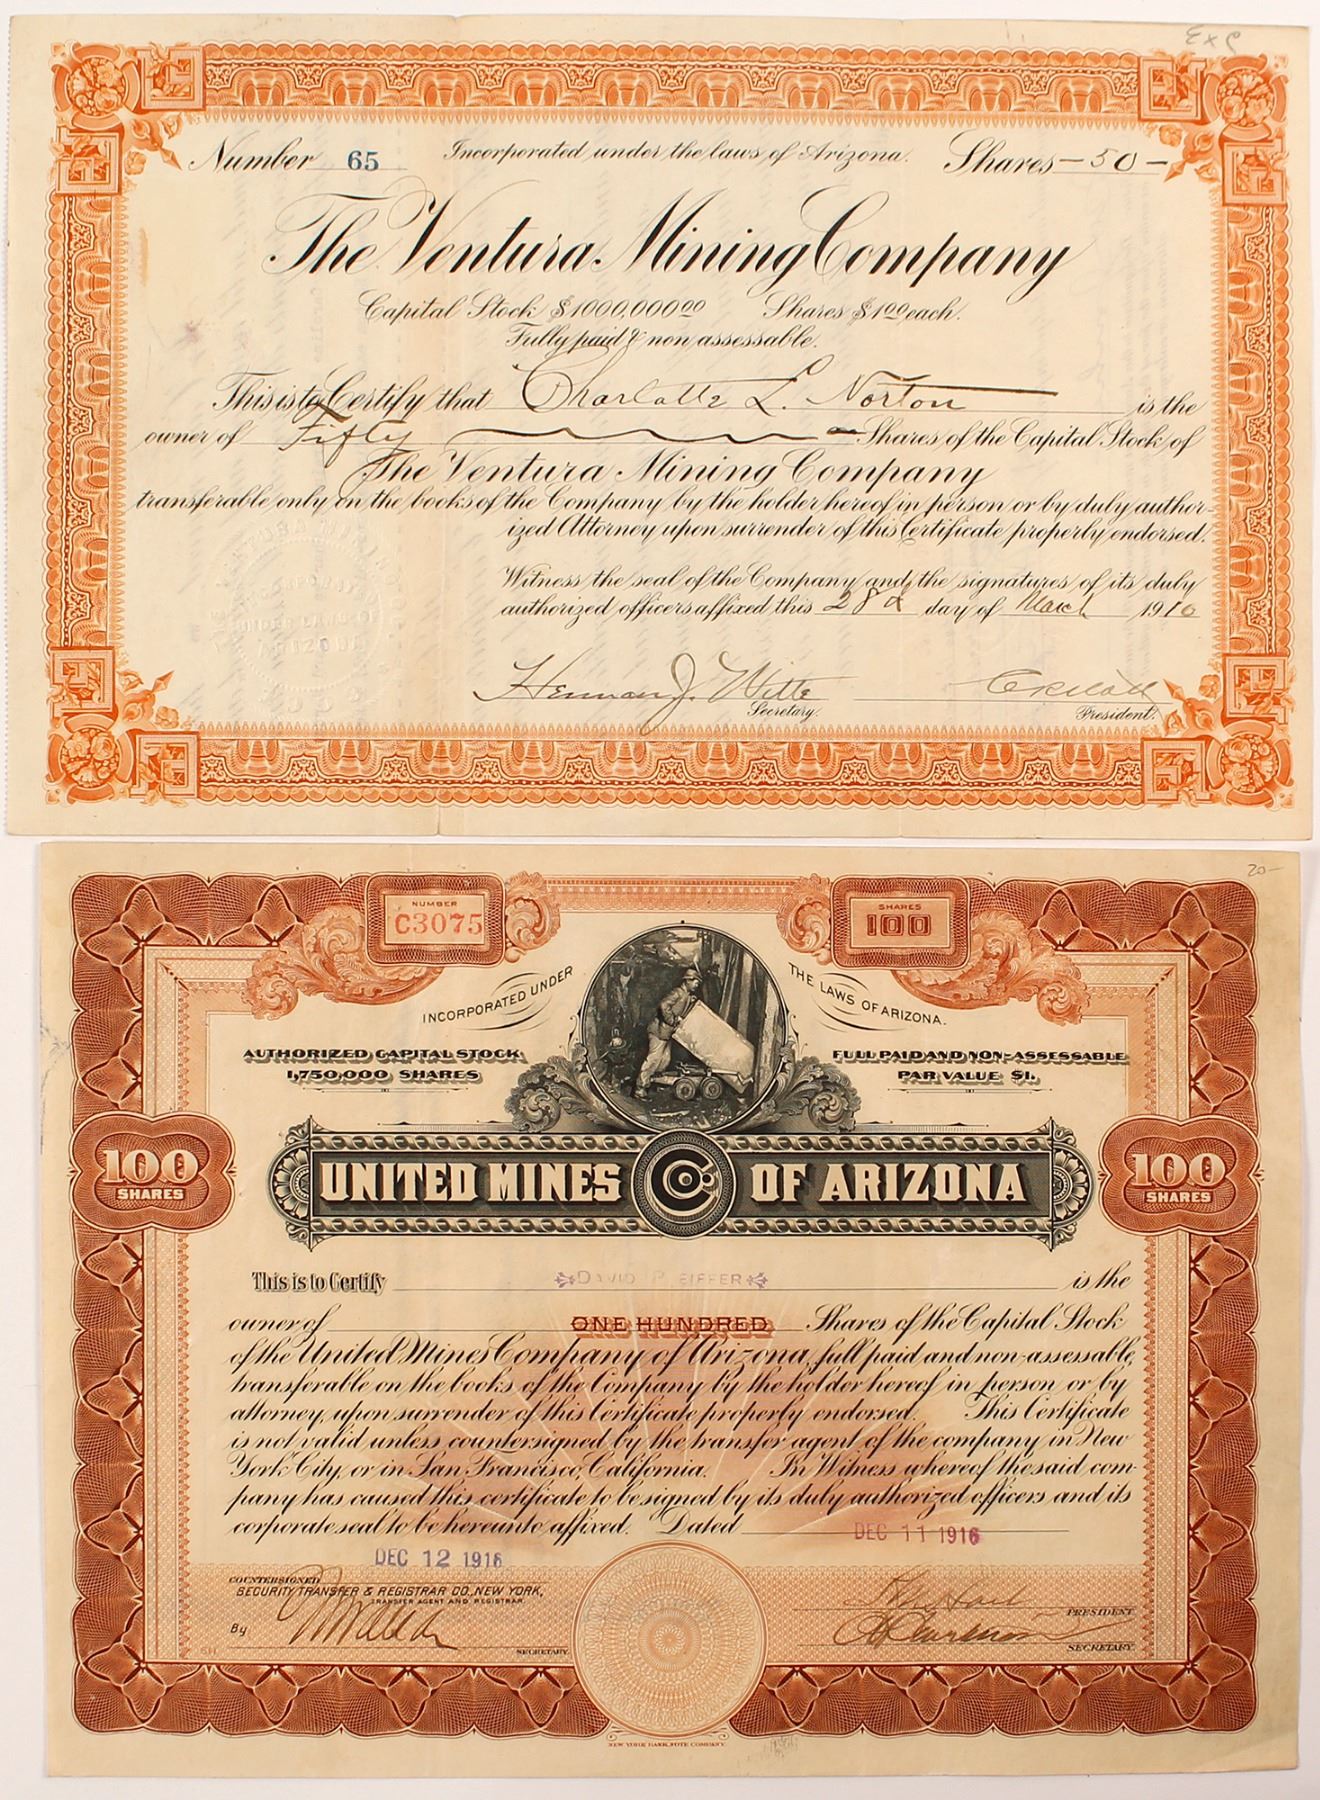 Ex S
Number 65 Incorporated under the laws of Arizona. Shares - 50 -
The Ventura Mining Company
Capital Stock $1000,000.00 Shares $1.00 each.
Fully paid & non assessable.
This is to Certify that Charlotte L. Norton is the
owner of Fifty Shares of the Capital Stock of
The Ventura Mining Company
transferable only on the books of the Company by the holder hereof in person or by duly author-
ized Attorney upon surrender of this Certificate properly endorsed.
Witness the seal of the Company and the signatures of its duly
authorized officers affixed this 28th day of March 1910
Herman J. Witte
Secretary. President.
20-
NUMBER C3075
SHARES 100
INCORPORATED UNDER THE LAWS OF ARIZONA.
AUTHORIZED CAPITAL STOCK FULL PAID AND NON-ASSESSABLE
1,750,000 SHARES PAR VALUE $1.
100 SHARES 100 SHARES
UNITED MINES Co. OF ARIZONA
This is to Certify DAVID PFEIFFER is the
owner of ONE HUNDRED Shares of the Capital Stock
of the United Mines Company of Arizona, full paid and non-assessable,
transferable on the books of the Company by the holder hereof in person or by
attorney, upon surrender of this Certificate properly endorsed. This Certificate
is not valid unless countersigned by the transfer agent of the company in New
York City, or in San Francisco, California. In Witness whereof the said com-
pany has caused this certificate to be signed by its duly authorized officers and its
corporate seal to be hereunto affixed. Dated DEC 11 1916
DEC 12 1916
COUNTERSIGNED
SECURITY TRANSFER & REGISTRAR CO., NEW YORK,
TRANSFER AGENT AND REGISTRAR.
PRESIDENT
By SECRETARY. SECRETARY.
NEW YORK BANK NOTE COMPANY